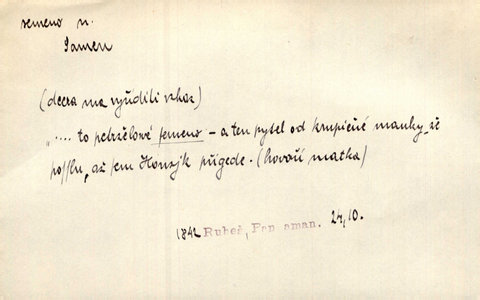 semeno n.
Samen
(dcera má vyřídili vzkaz)
„.... to petrželowé semeno – a ten pytel od krupičné mauky, že
possslu, až sem Honzjk přigede. (hovoří matka)
1842 Rubeš, Pan aman. 24, 10.